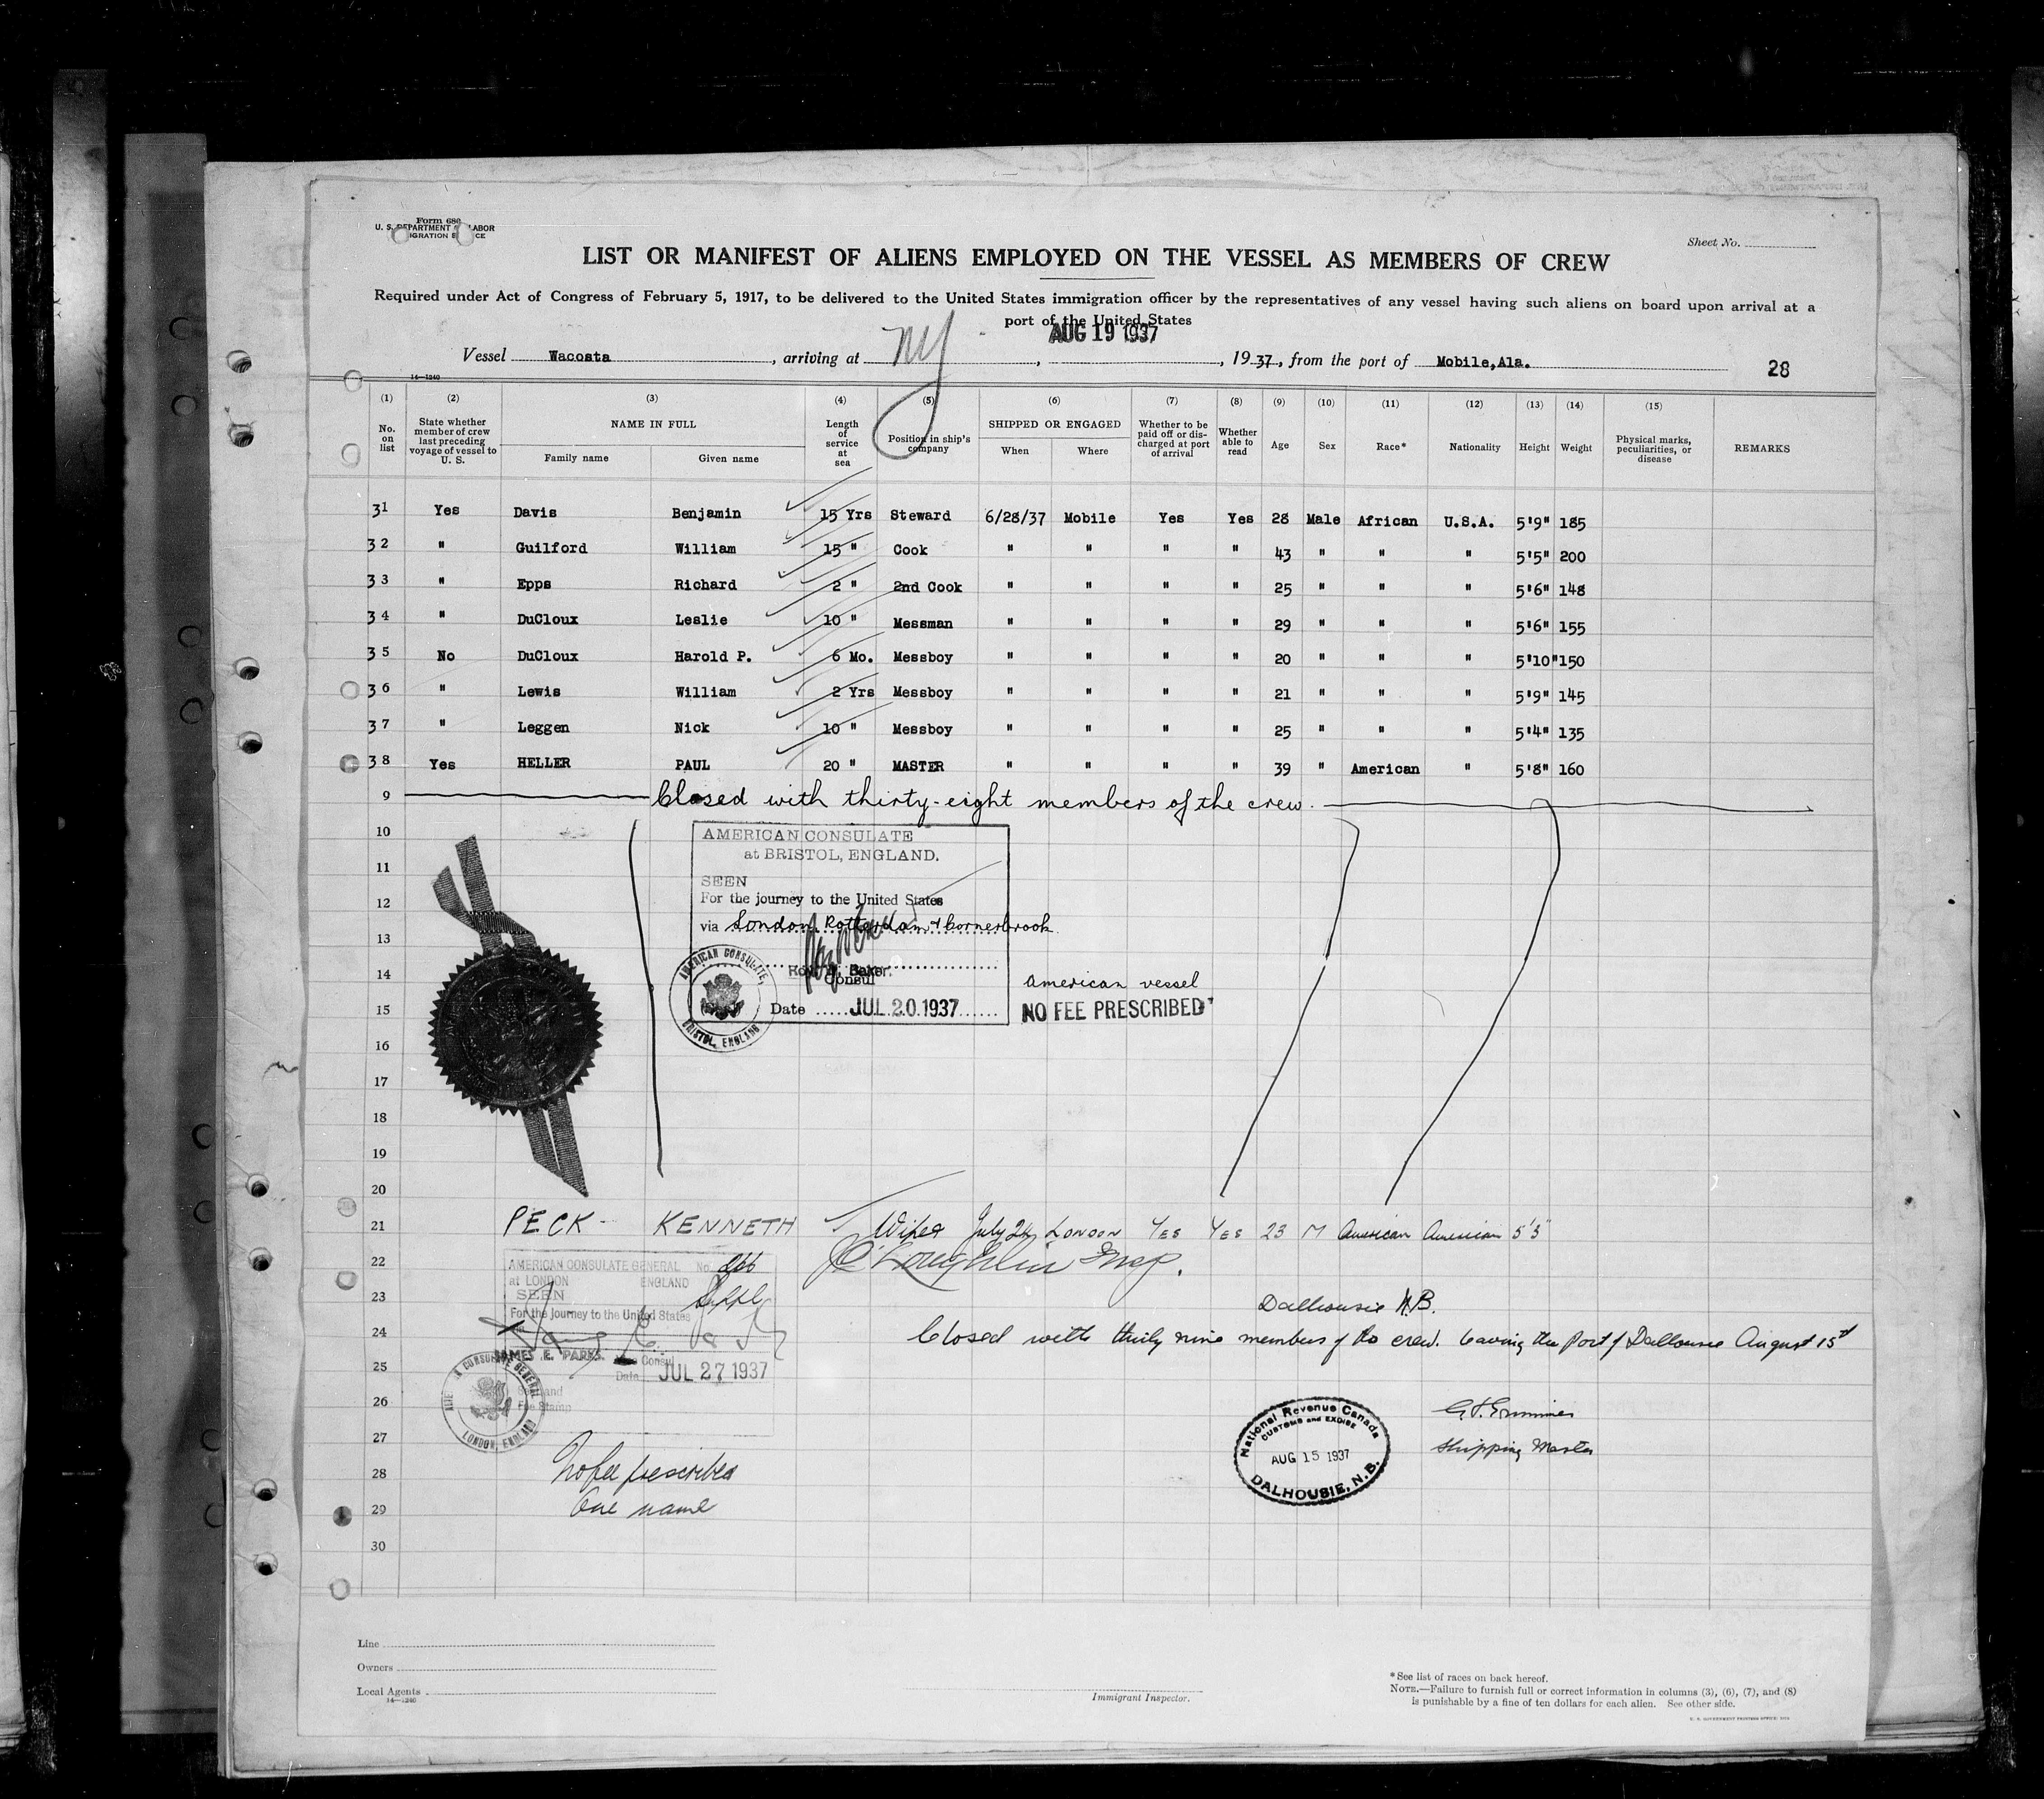 Form 680
U. S. DEPARTMENT LABOR
Sheet No.
LIST OR MANIFEST OF ALIENS EMPLOYED ON THE VESSEL AS MEMBERS OF CREW
Required under Act of Congress of February 5, 1917, to be delivered to the United States immigration officer by the representatives of any vessel having such aliens on board upon arrival at a
port of the United States
AUG 19 1937
Vessel Wacosta, arriving at NY, 1937, from the port of Mobile, Ala.
28
14—1240
(1) (2) (3) (4) (5) (6) (7) (8) (9) (10) (11) (12) (13) (14) (15)
No. on list
State whether member of crew last preceding voyage of vessel to U. S.
NAME IN FULL
Family name Given name
Length of service at sea
Position in ship's company
SHIPPED OR ENGAGED
When Where
Whether to be paid off or discharged at port of arrival
Whether able to read
Age Sex Race* Nationality Height Weight
Physical marks, peculiarities, or disease
REMARKS
31 Yes Davis Benjamin 15 Yrs Steward 6/28/37 Mobile Yes Yes 28 Male African U.S.A. 5'9" 185
32 " Guilford William 15 " Cook " " " " 43 " " " 5'5" 200
33 " Epps Richard 2 " 2nd Cook " " " " 25 " " " 5'6" 148
34 " DuCloux Leslie 10 " Messman " " " " 29 " " " 5'6" 155
35 No DuCloux Harold P. 6 Mo. Messboy " " " " 20 " " " 5'10" 150
36 " Lewis William 2 Yrs Messboy " " " " 21 " " " 5'9" 145
37 " Leggen Nick 10 " Messboy " " " " 25 " " " 5'4" 135
38 Yes HELLER PAUL 20 " MASTER " " " " 39 " American " 5'8" 160
9 Closed with thirty-eight members of the crew.
10
AMERICAN CONSULATE
at BRISTOL, ENGLAND.
11
SEEN
12
For the journey to the United States
via London, Rotterdam & Cornerbrook
13
14
Baker.
Consul
American vessel
15
Date JUL 20 1937
NO FEE PRESCRIBED
AMERICAN CONSULATE, BRISTOL, ENGLAND
16
17
18
19
20
21 PECK - KENNETH Wiper July 24 London YES YES 23 M American American 5'5"
22
O'Loughlin Insp.
AMERICAN CONSULATE GENERAL No. 266
at LONDON ENGLAND
SEEN
23
Dalhousie N.B.
For the journey to the United States
24 Closed with thirty nine members of the crew. Leaving the Port of Dalhousie August 15th
JAMES E. PARKS. Consul
25
Date JUL 27 1937
CONSULATE GENERAL
LONDON, ENGLAND
Fee Stamp
26
National Revenue Canada
CUSTOMS and EXCISE
AUG 15 1937
DALHOUSIE, N.B.
Shipping Master
27
28 No fee prescribed
29 One name
30
Line
Owners
Local Agents
14—1240
Immigrant Inspector.
*See list of races on back hereof.
NOTE.—Failure to furnish full or correct information in columns (3), (6), (7), and (8)
is punishable by a fine of ten dollars for each alien. See other side.